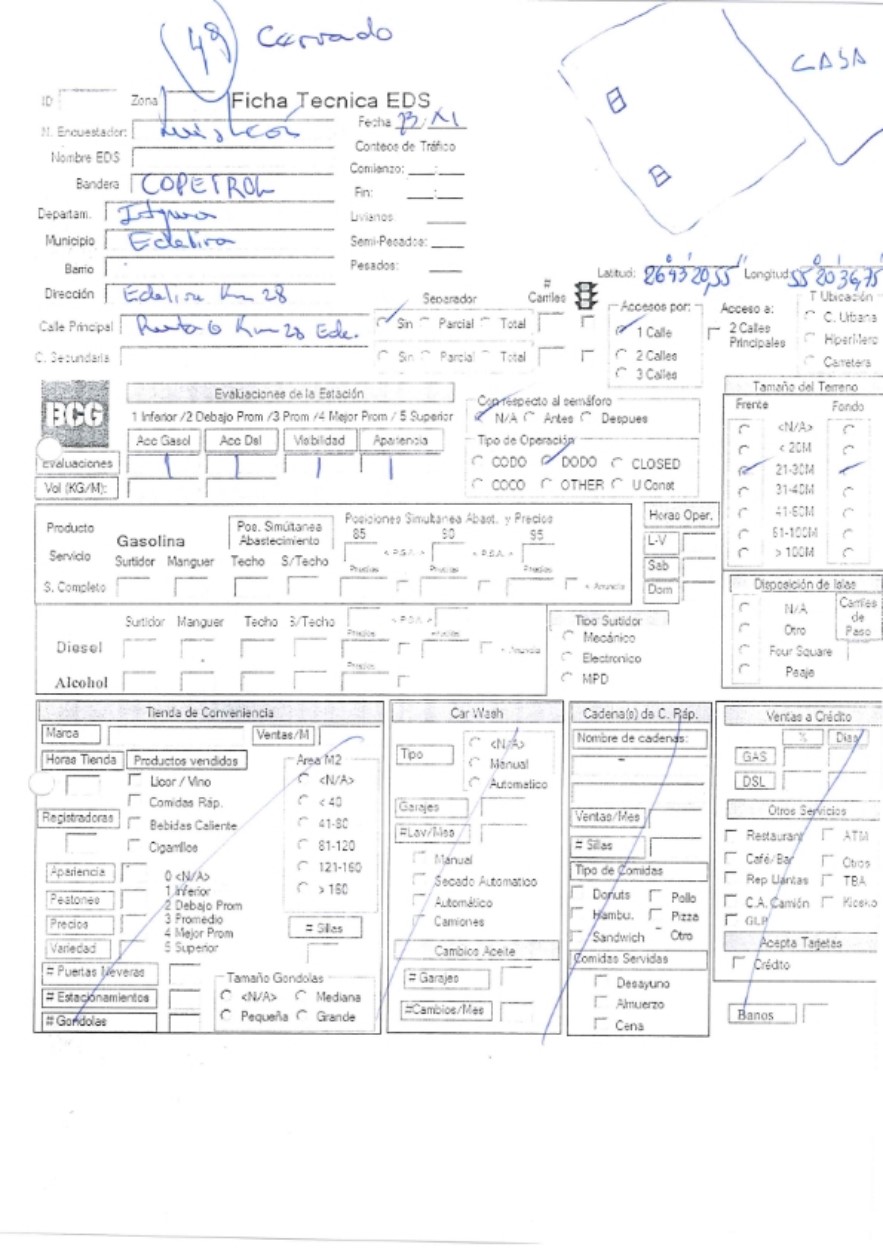 49 Cerrado
CASA
ID Zona Ficha Tecnica EDS
N. Encuestador: Luis León Fecha
Nombre EDS Conteos de Tráfico
Bandera COPETROL Comienzo: __:__
Fin: __:__
Departam. Itapua Livianos:
Municipio Edelira Semi-Pesados:
Barrio Pesados:
Latitud: 26° 43' 20,55" Longitud: 55° 20' 36,75
Dirección Edelira Km 28
Separador # Carriles Accesos por: Acceso a: T Ubicación
Calle Principal Ruta 6 Km 28 Ede. Sin Parcial Total 1 Calle 2 Calles Principales C. Urbana
2 Calles HiperMerc
C. Secundaria Sin Parcial Total 3 Calles Carretera
BCG
Evaluaciones de la Estación
1 Inferior /2 Debajo Prom /3 Prom /4 Mejor Prom / 5 Superior
Acc Gasol Acc Dsl Visibilidad Apariencia
Evaluaciones 1 1 1 1
Vol (KG/M):
Con respecto al semáforo
N/A Antes Despues
Tipo de Operación
CODO DODO CLOSED
COCO OTHER U Const
Tamaño del Terreno
Frente Fondo
<N/A>
< 20M
21-30M
31-40M
41-60M
61-100M
> 100M
Producto Gasolina Pos. Simúltanea Abastecimiento Posiciones Simultanea Abast. y Precios
85 90 95
< P.S.A. > < P.S.A. >
Servicio Surtidor Manguer Techo S/Techo Precios Precios Precios
S. Completo < Anuncia
Horas Oper.
L-V
Sab
Dom
Surtidor Manguer Techo S/Techo < P.S.A. >
Precios Precios
Diesel < Anuncia
Precios
Alcohol
Tipo Surtidor
Mecánico
Electronico
MPD
Disposición de Islas
N/A Carriles de Paso
Otro
Four Square
Peaje
Tienda de Conveniencia
Marca Ventas/M
Horas Tienda Productos vendidos Area M2
Licor / Vino <N/A>
Comidas Ráp. < 40
Registradoras Bebidas Caliente 41-80
Cigarrillos 81-120
121-160
> 160
Apariencia 0 <N/A>
1 Inferior
Peatones 2 Debajo Prom
Precios 3 Promedio
4 Mejor Prom # Sillas
Variedad 5 Superior
# Puertas Neveras Tamaño Gondolas
# Estacionamientos <N/A> Mediana
# Gondolas Pequeña Grande
Car Wash
Tipo <N/A>
Manual
Automatico
Garajes
#Lav/Mes
Manual
Secado Automatico
Automático
Camiones
Cambios Aceite
# Garajes
#Cambios/Mes
Cadena(s) de C. Ráp.
Nombre de cadenas:
Ventas/Mes
# Sillas
Tipo de Comidas
Donuts Pollo
Hambu. Pizza
Sandwich Otro
Comidas Servidas
Desayuno
Almuerzo
Cena
Ventas a Crédito
% Dias
GAS
DSL
Otros Servicios
Restaurant ATM
Café/Bar Otros
Rep Llantas TBA
C.A. Camión Kiosko
GLP
Acepta Tarjetas
Crédito
Banos